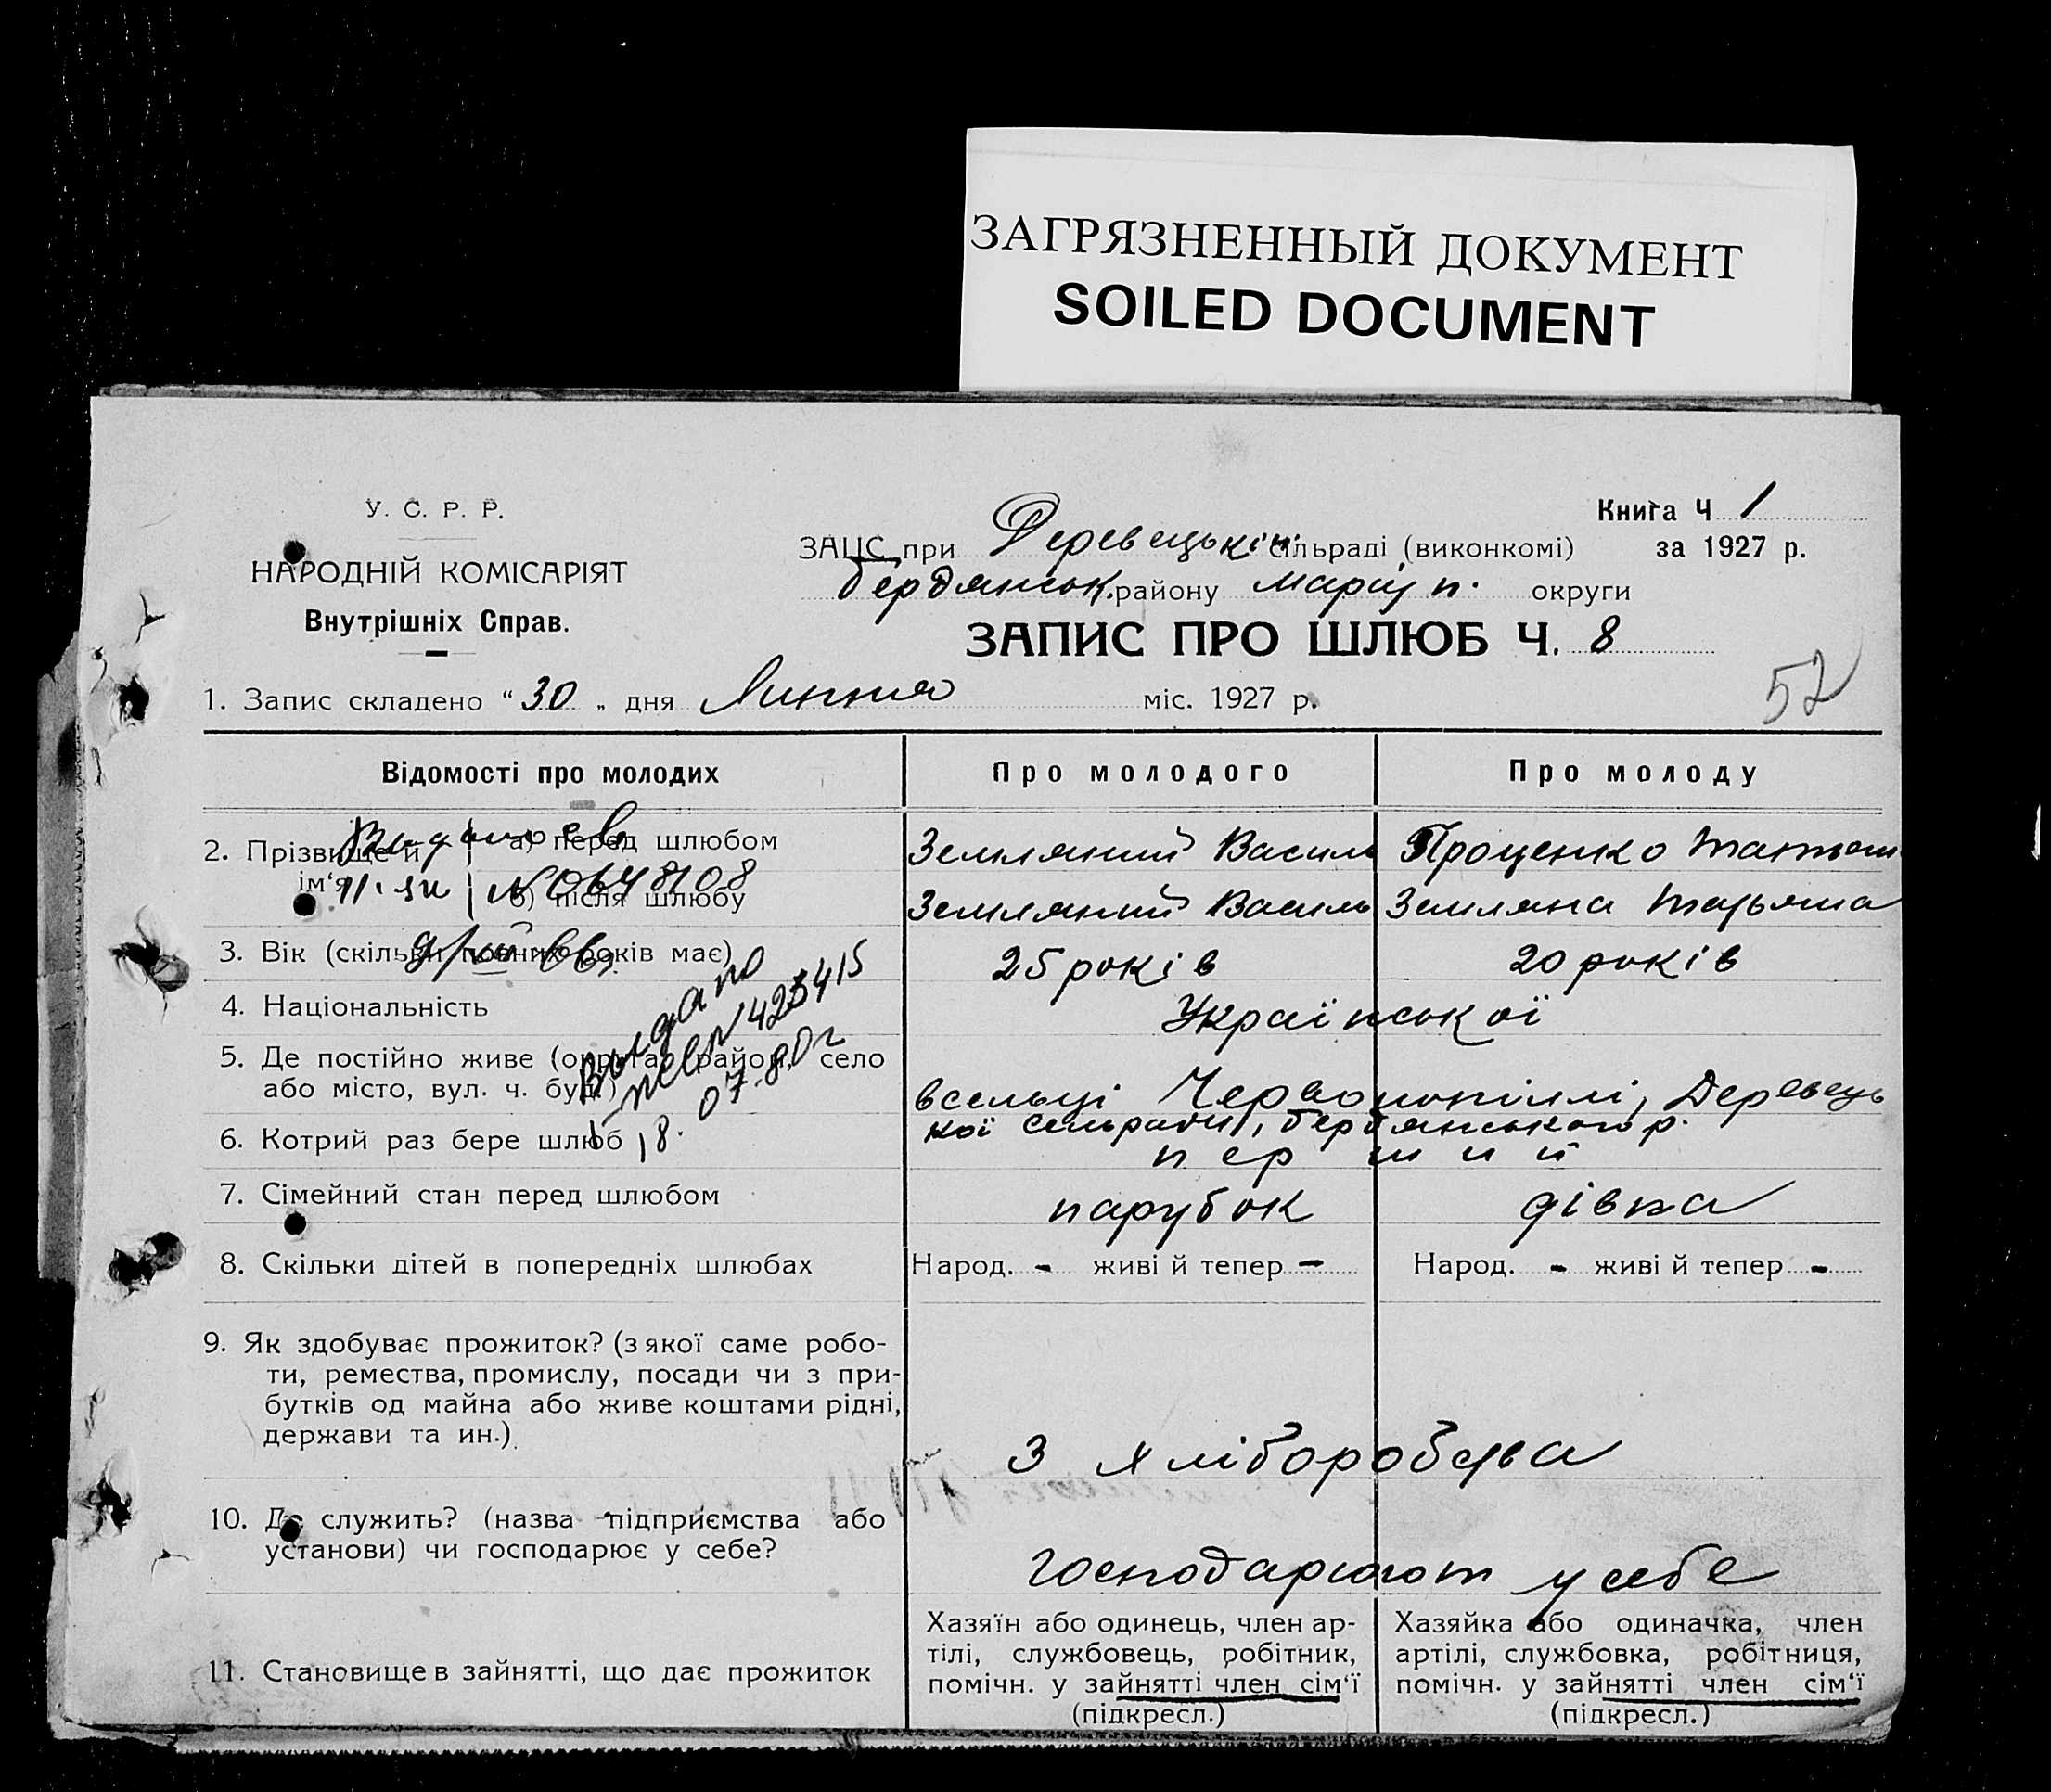 ЗАГРЯЗНЕННЫЙ ДОКУМЕНТ
SOILED DOCUMENT
У. С. Р. Р.
НАРОДНІЙ КОМІСАРІЯТ
Внутрішніх Справ.
Книга Ч 1
за 1927 р.
ЗАЦС при Деревецькій сільраді (виконкомі)
бердянськ. району Маріуп. округи
ЗАПИС ПРО ШЛЮБ Ч. 8
52
1. Запис складено “ 30 „ дня Липня міс. 1927 р.
Відомості про молодих Про молодого Про молоду
2. Прізвище й ім‘я а) перед шлюбом Земляний Василь Проценко Татьян
б) після шлюбу Земляний Василь Земляна Татьяна
№ 0648108
3. Вік (скільки повних років має) 25 років 20 років
4. Національність Української
Выдано
№ 423415
18. 07. 80 г
5. Де постійно живе (округа, район, село
або місто, вул. ч. буд.)
в сельці Червонопіллі, Деревець
кої сельради, бердянського р.
6. Котрий раз бере шлюб перший
7. Сімейний стан перед шлюбом парубок дівка
8. Скільки дітей в попередніх шлюбах Народ. - живі й тепер - Народ. - живі й тепер -
9. Як здобуває прожиток? (з якої саме робо-
ти, ремества, промислу, посади чи з при-
бутків од майна або живе коштами рідні,
держави та ин.)
З хліборобства
10. Де служить? (назва підприємства або
установи) чи господарює у себе?
господарюют у себе
11. Становище в зайнятті, що дає прожиток
Хазяїн або одинець, член ар-
тілі, службовець, робітник,
помічн. у зайнятті член сім‘ї
(підкресл.)
Хазяйка або одиначка, член
артілі, службовка, робітниця,
помічн. у зайнятті член сім‘ї
(підкресл.)